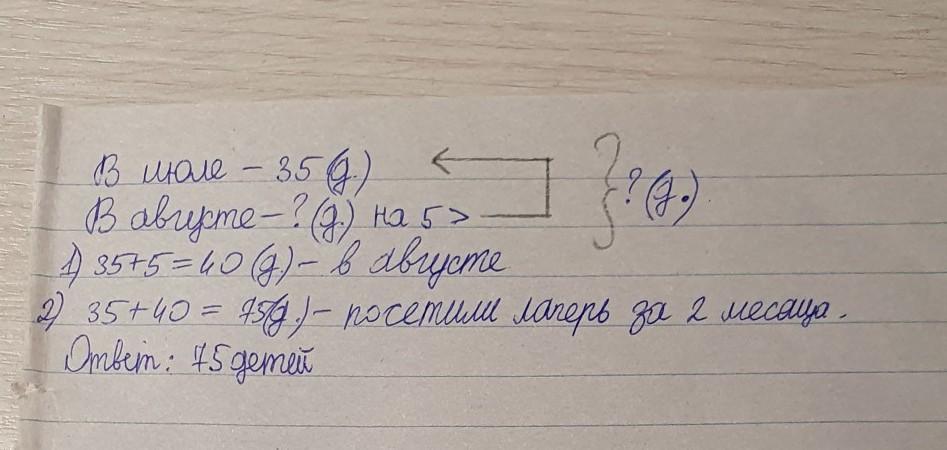 В июле – 35 (д.)
В августе – ? (д.) на 5 >
? (д.)
1) 35+5=40 (д.) – в августе
2) 35+40 = 75(д.) – посетили лагерь за 2 месяца.
Ответ: 75 детей